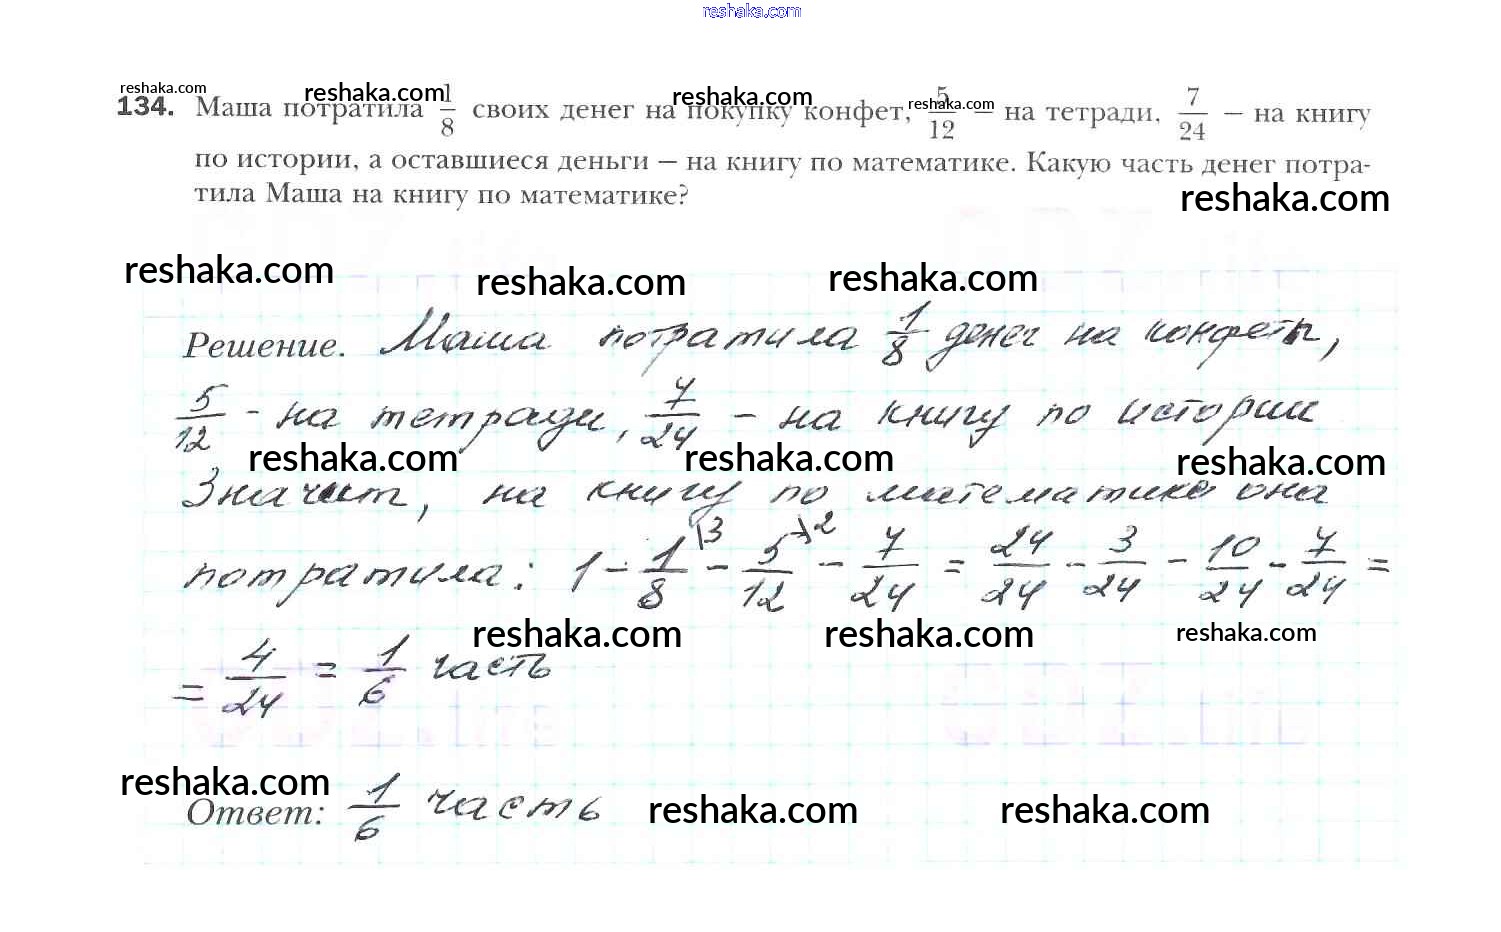 reshaka.com
reshaka.com reshaka.com reshaka.com reshaka.com
134. Маша потратила 1/8 своих денег на покупку конфет, 5/12 — на тетради, 7/24 — на книгу
по истории, а оставшиеся деньги — на книгу по математике. Какую часть денег потра-
тила Маша на книгу по математике?
reshaka.com
reshaka.com reshaka.com reshaka.com
Решение. Маша потратила 1/8 денег на конфеты,
5/12 - на тетради, 7/24 - на книгу по истории
reshaka.com reshaka.com reshaka.com
Значит, на книгу по математике она
потратила: 1 - 1/8 \3 - 5/12 \2 - 7/24 = 24/24 - 3/24 - 10/24 - 7/24 =
reshaka.com reshaka.com reshaka.com
= 4/24 = 1/6 часть
reshaka.com
Ответ: 1/6 часть
reshaka.com reshaka.com